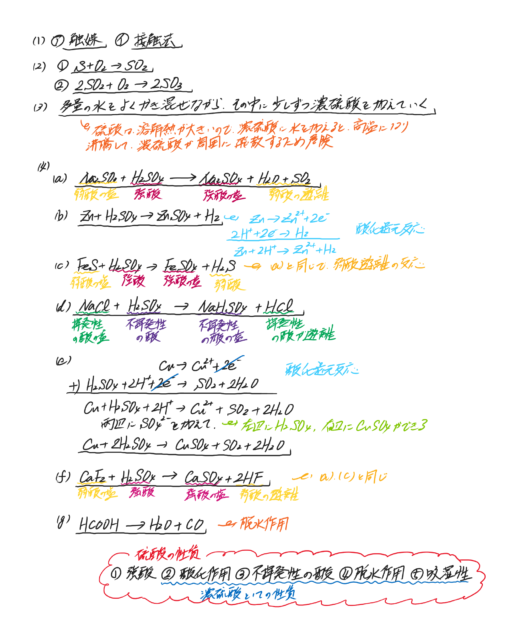 (1) ㋐ 触媒 ㋑ 接触法
(2) ① S+O₂ → SO₂
② 2SO₂ + O₂ → 2SO₃
(3) 多量の水をよくかき混ぜながら、その中に少しずつ濃硫酸を加えていく
硫酸は、溶解熱が大きいので、濃硫酸に水を加えると、高温になり
沸騰して、濃硫酸が周囲に飛散するため危険
(4)
(a) Na₂SO₃ + H₂SO₄ → Na₂SO₄ + H₂O + SO₂
弱酸の塩 強酸 強酸の塩 弱酸の遊離
(b) Zn + H₂SO₄ → ZnSO₄ + H₂ Zn → Zn²⁺ + 2e⁻
2H⁺ + 2e⁻ → H₂ 酸化還元反応
Zn + 2H⁺ → Zn²⁺ + H₂
(c) FeS + H₂SO₄ → FeSO₄ + H₂S (a)と同じで、弱酸遊離の反応
弱酸の塩 強酸 強酸の塩 弱酸
(d) NaCl + H₂SO₄ → NaHSO₄ + HCl
揮発性 不揮発性 不揮発性 揮発性
の酸の塩 の酸 の酸の塩 の酸が遊離
(e) Cu → Cu²⁺ + 2e⁻ 酸化還元反応
+) H₂SO₄ + 2H⁺ + 2e⁻ → SO₂ + 2H₂O
Cu + H₂SO₄ + 2H⁺ → Cu²⁺ + SO₂ + 2H₂O
両辺に SO₄²⁻ を加えて、 左辺に H₂SO₄、右辺に CuSO₄ ができる
Cu + 2H₂SO₄ → CuSO₄ + SO₂ + 2H₂O
(f) CaF₂ + H₂SO₄ → CaSO₄ + 2HF (a)、(c)と同じ
弱酸の塩 強酸 強酸の塩 弱酸の遊離
(g) HCOOH → H₂O + CO 脱水作用
硫酸の性質
① 強酸 ② 酸化作用 ③ 不揮発性の酸 ④ 脱水作用 ⑤ 吸湿性
濃硫酸としての性質